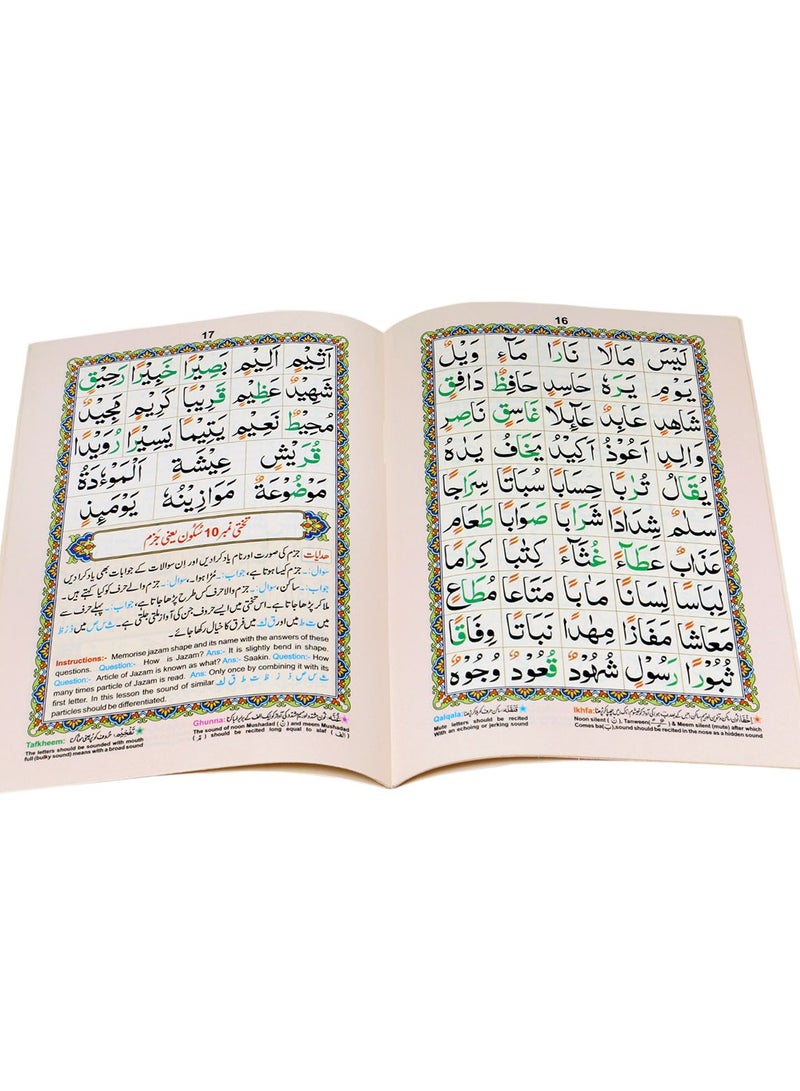 16
لَيْسَ مَالًا نَارًا مَآءً وَيْلٌ
يَوْمٍ يَرَهٗ حَاسِدٍ حَافِظٌ دَافِقٍ
شَاهِدٍ عَابِدٌ عَآئِلًا غَاسِقٍ نَاصِرٍ
وَالِدٍ اَعُوْذُ اَكِيْدُ يَخَافُ يَدٰهُ
يُقَالُ تُرٰبًا حِسَابًا سُبَاتًا سِرَاجًا
سَلٰمٌ شِدَادًا شَرَابًا صَوَابًا طَعَامٍ
عَذَابٌ عَطَآءً غُثَآءً كِتٰبًا كِرَامًا
لِبَاسًا لِسَانًا مَاٰبًا مَتَاعًا مُطَاعٍ
مَعَاشًا مَفَازًا مِهٰدًا نَبَاتًا وِفَاقًا
ثُبُوْرًا رَسُوْلٍ شُهُوْدٌ قُعُوْدٌ وُجُوْهٌ
Ikhfa:
Noon silent (نْ), Tanween & Meem silent (mute) after which
Comes ba(ب), sound should be recited in the nose as a hidden sound
Qalqala:
Mute letters should be recited
With an echoing or jerking sound
17
اَثِيْمٍ اَلِيْمٍ بَصِيْرًا خَبِيْرًا رَحِيْقٍ
شَهِيْدٌ عَظِيْمٍ قَرِيْبًا كَرِيْمٍ مَجِيْدٌ
مُحِيْطٌ نَعِيْمٍ يَتِيْمًا يَسِيْرًا رُوَيْدًا
قُرَيْشٍ عِيْشَةٍ اَلْمَوْءٗدَةُ
مَوْضُوْعَةٌ مَوَازِيْنُهٗ يَوْمَئِذٍ
تختی نمبر 10 سُکُون یعنی جَزم
ہدایات: جزم کی صورت اور نام یاد کرا دیں اور اِن سوالات کے جوابات بھی یاد کرا دیں
سوال:۔ جزم کیسا ہوتا ہے، جواب:۔ مُڑا ہوا۔ سوال:۔ جزم والے حرف کو کیا کہتے ہیں۔
جواب:۔ ساکن، سوال:۔ جزم والا حرف کس طرح پڑھا جاتا ہے، جواب:۔ پہلے حرف سے
ملا کر پڑھا جاتا ہے۔ اس تختی میں ایسے حروف جن کی آواز ملتی جلتی ہے۔ ث س ص میں ذ ز ظ
میں ت ط میں اور ق ك میں فرق کا خیال رکھا جائے۔
Instructions:- Memorise jazam shape and its name with the answers of these
questions. Question:- How is Jazam? Ans:- It is slightly bend in shape.
Question:- Article of Jazam is known as what? Ans:- Saakin. Question:- How
many times particle of Jazam is read. Ans: Only once by combining it with its
first letter. In this lesson the sound of similar ث س ص ذ ز ظ ت ط ق ك
particles should be differentiated.
Ghunna:
The sound of noon Mushadad (نّ) and meem Mushadad
(مّ) should be recited long equal to alaf (الف)
Tafkheem:
The letters should be sounded with mouth
full (bulky sound) means with a broad sound